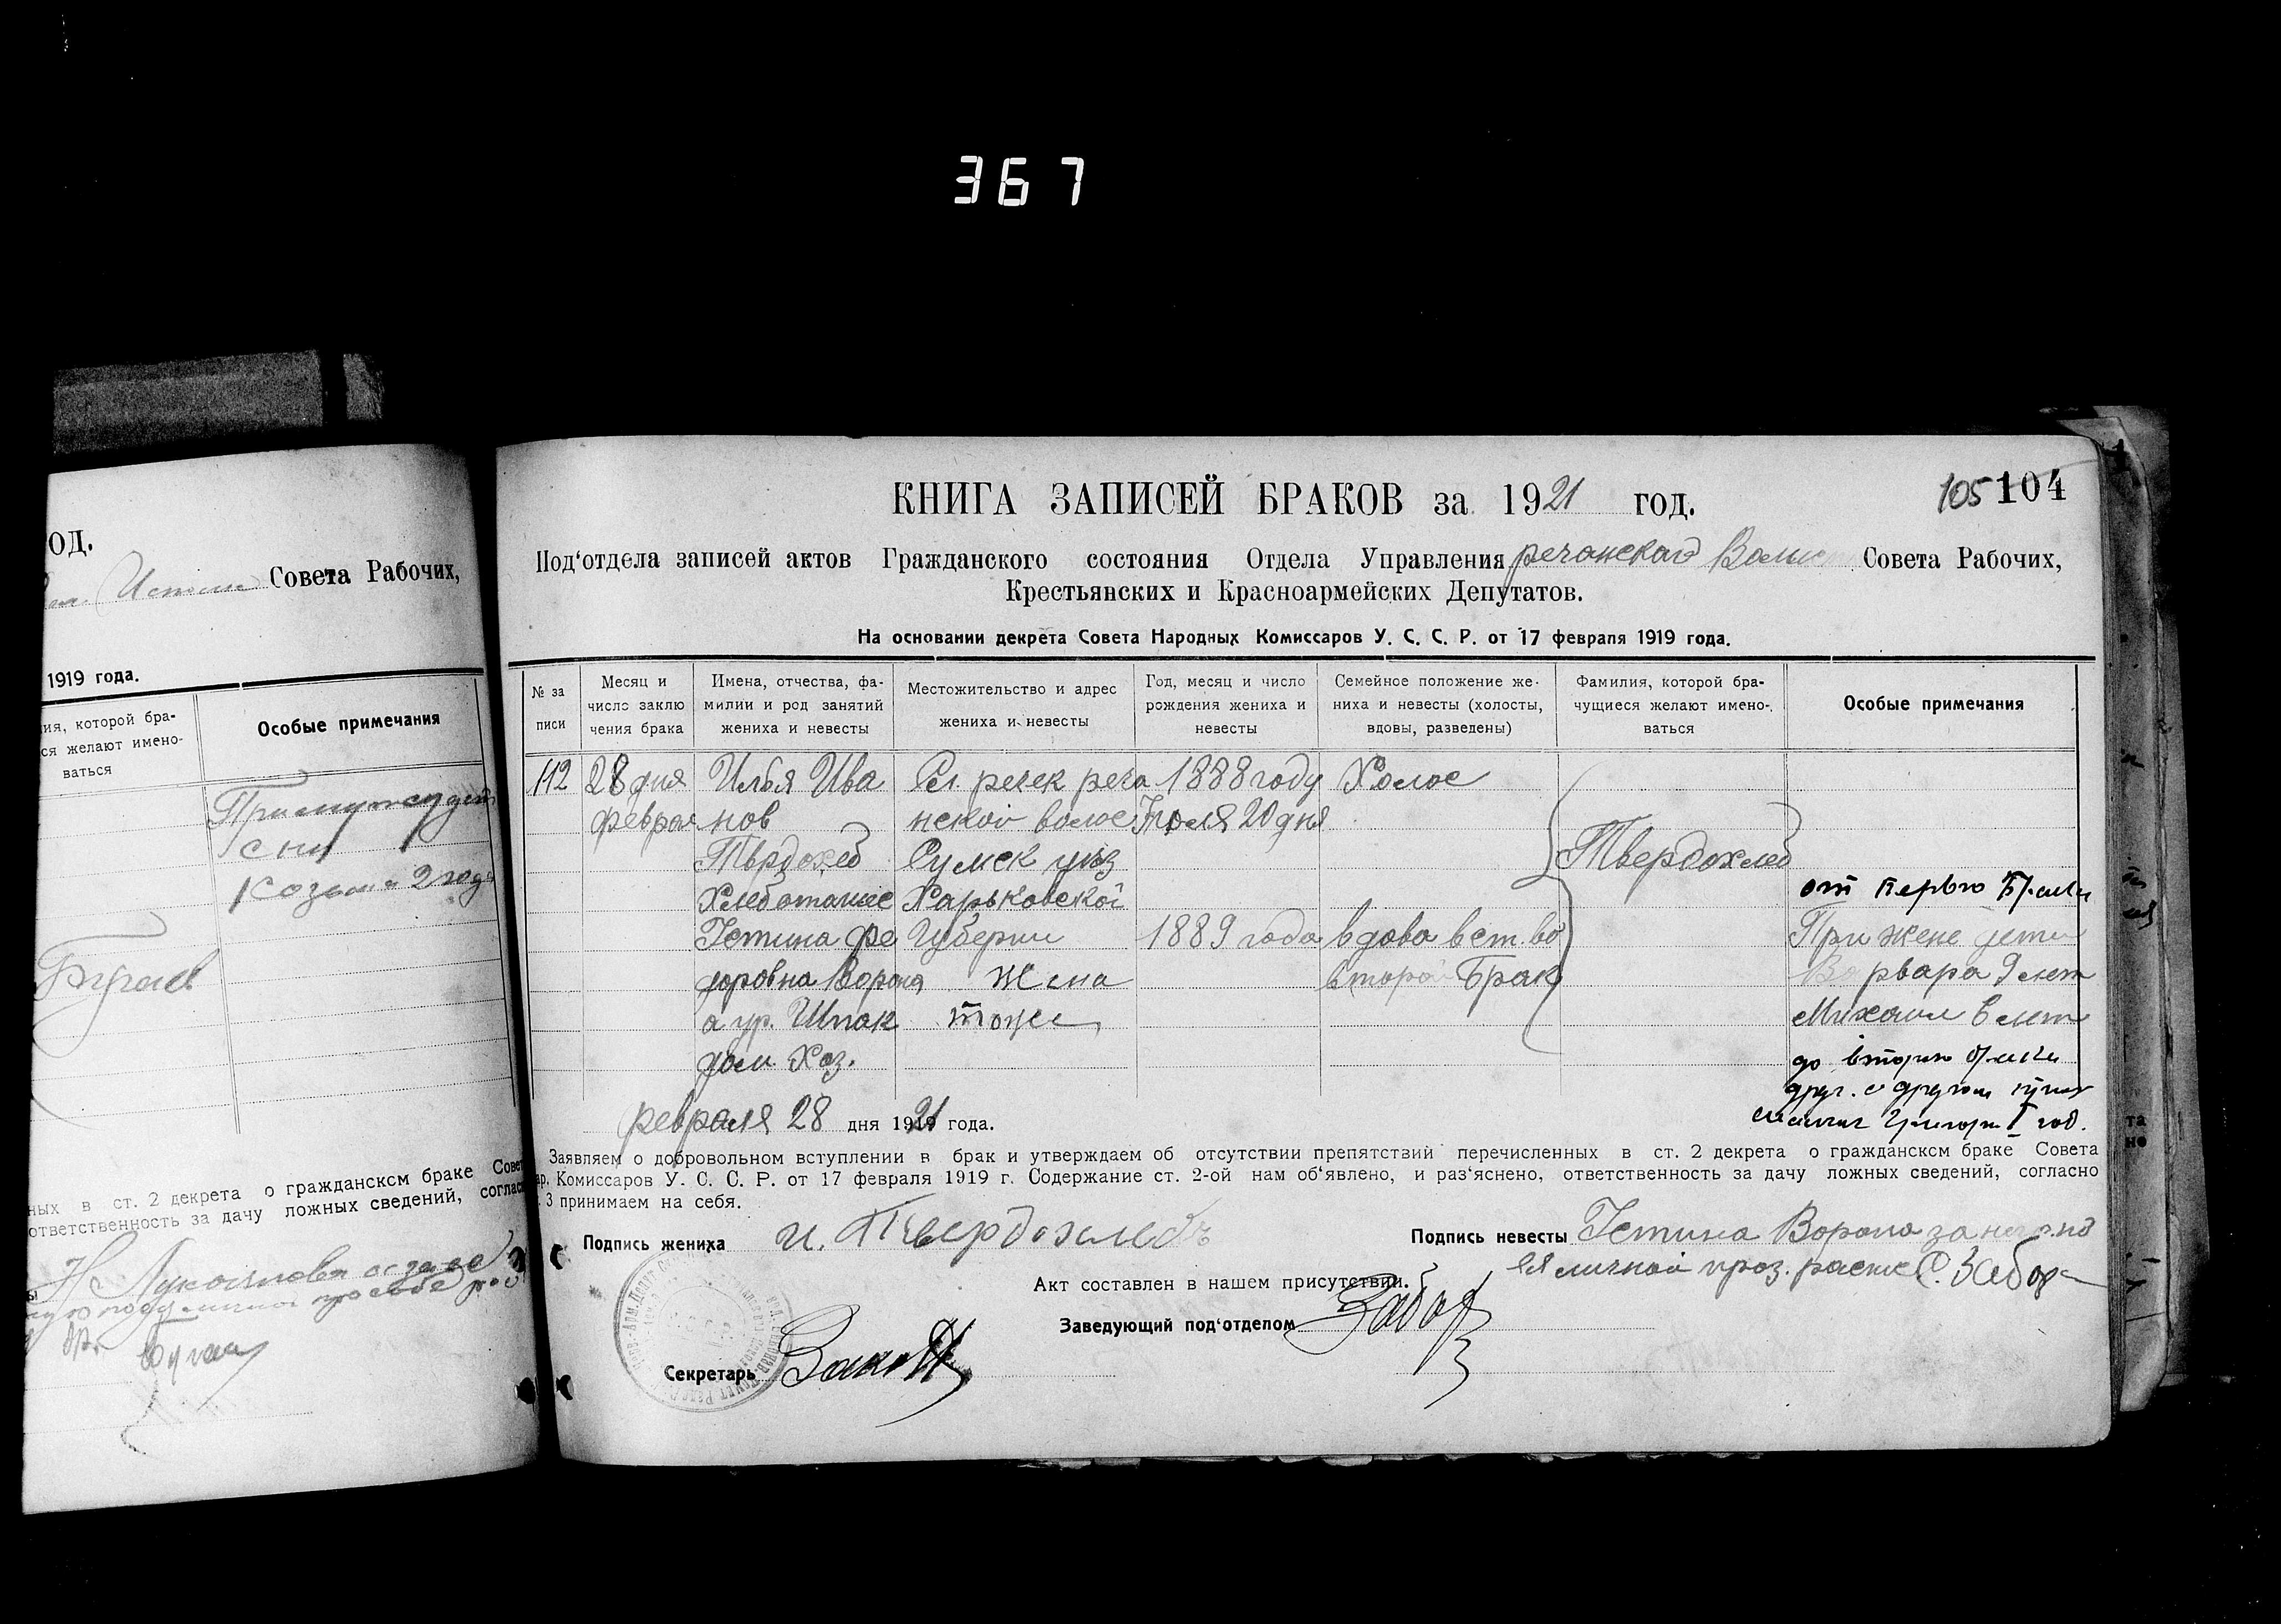 367
ОД.
Совета Рабочих,
1919 года.
ия, которой бра-
ся желают имено-
ваться
Особые примечания
с ни
2 года
ных в ст. 2 декрета о гражданском браке Совет
ответственность за дачу ложных сведений, соглас
105 104
КНИГА ЗАПИСЕЙ БРАКОВ за 1921 год.
Под‘отдела записей актов Гражданского состояния Отдела Управления речанской Совета Рабочих,
Крестьянских и Красноармейских Депутатов.
На основании декрета Совета Народных Комиссаров У. С. С. Р. от 17 февраля 1919 года.
№ за
писи
Месяц и
число заклю
чения брака
Имена, отчества, фа-
милии и род занятий
жениха и невесты
Местожительство и адрес
жениха и невесты
Год, месяц и число
рождения жениха и
невесты
Семейное положение же-
ниха и невесты (холосты,
вдовы, разведены)
Фамилия, которой бра-
чущиеся желают имено-
ваться
Особые примечания
112
28 дня
феврал
Илья Ива
нов
Твердохлеб
Устина Фе
доровна Ворона
а ур. Шпак
дом. Хоз.
Сел. речек реча
нской волос
Сумск уез
Харьковской
Губернии
Жена
тоже
1888 году
Июля 20 дня
1889 года
Холос
вдова вст. во
второй Брак
Твердохлеб
от перваго Брака
При жене дети
Варвара 9 лет
Михаил 6 лет
до второго брака
друг с другом
Григори 1 год.
февраля 28 дня 1921 года.
Заявляем о добровольном вступлении в брак и утверждаем об отсутствии препятствий перечисленных в ст. 2 декрета о гражданском браке Совета
ар. Комиссаров У. С. С. Р. от 17 февраля 1919 г. Содержание ст. 2-ой нам об‘явлено, и раз‘яснено, ответственность за дачу ложных сведений, согласно
3 принимаем на себя.
Подпись жениха И. Твердохлебъ
Подпись невесты Устина Ворона за негр. по
ея личной проз. распис С. Забора
Акт составлен в нашем присутствии.
Заведующий под‘отделом Забора
Секретарь